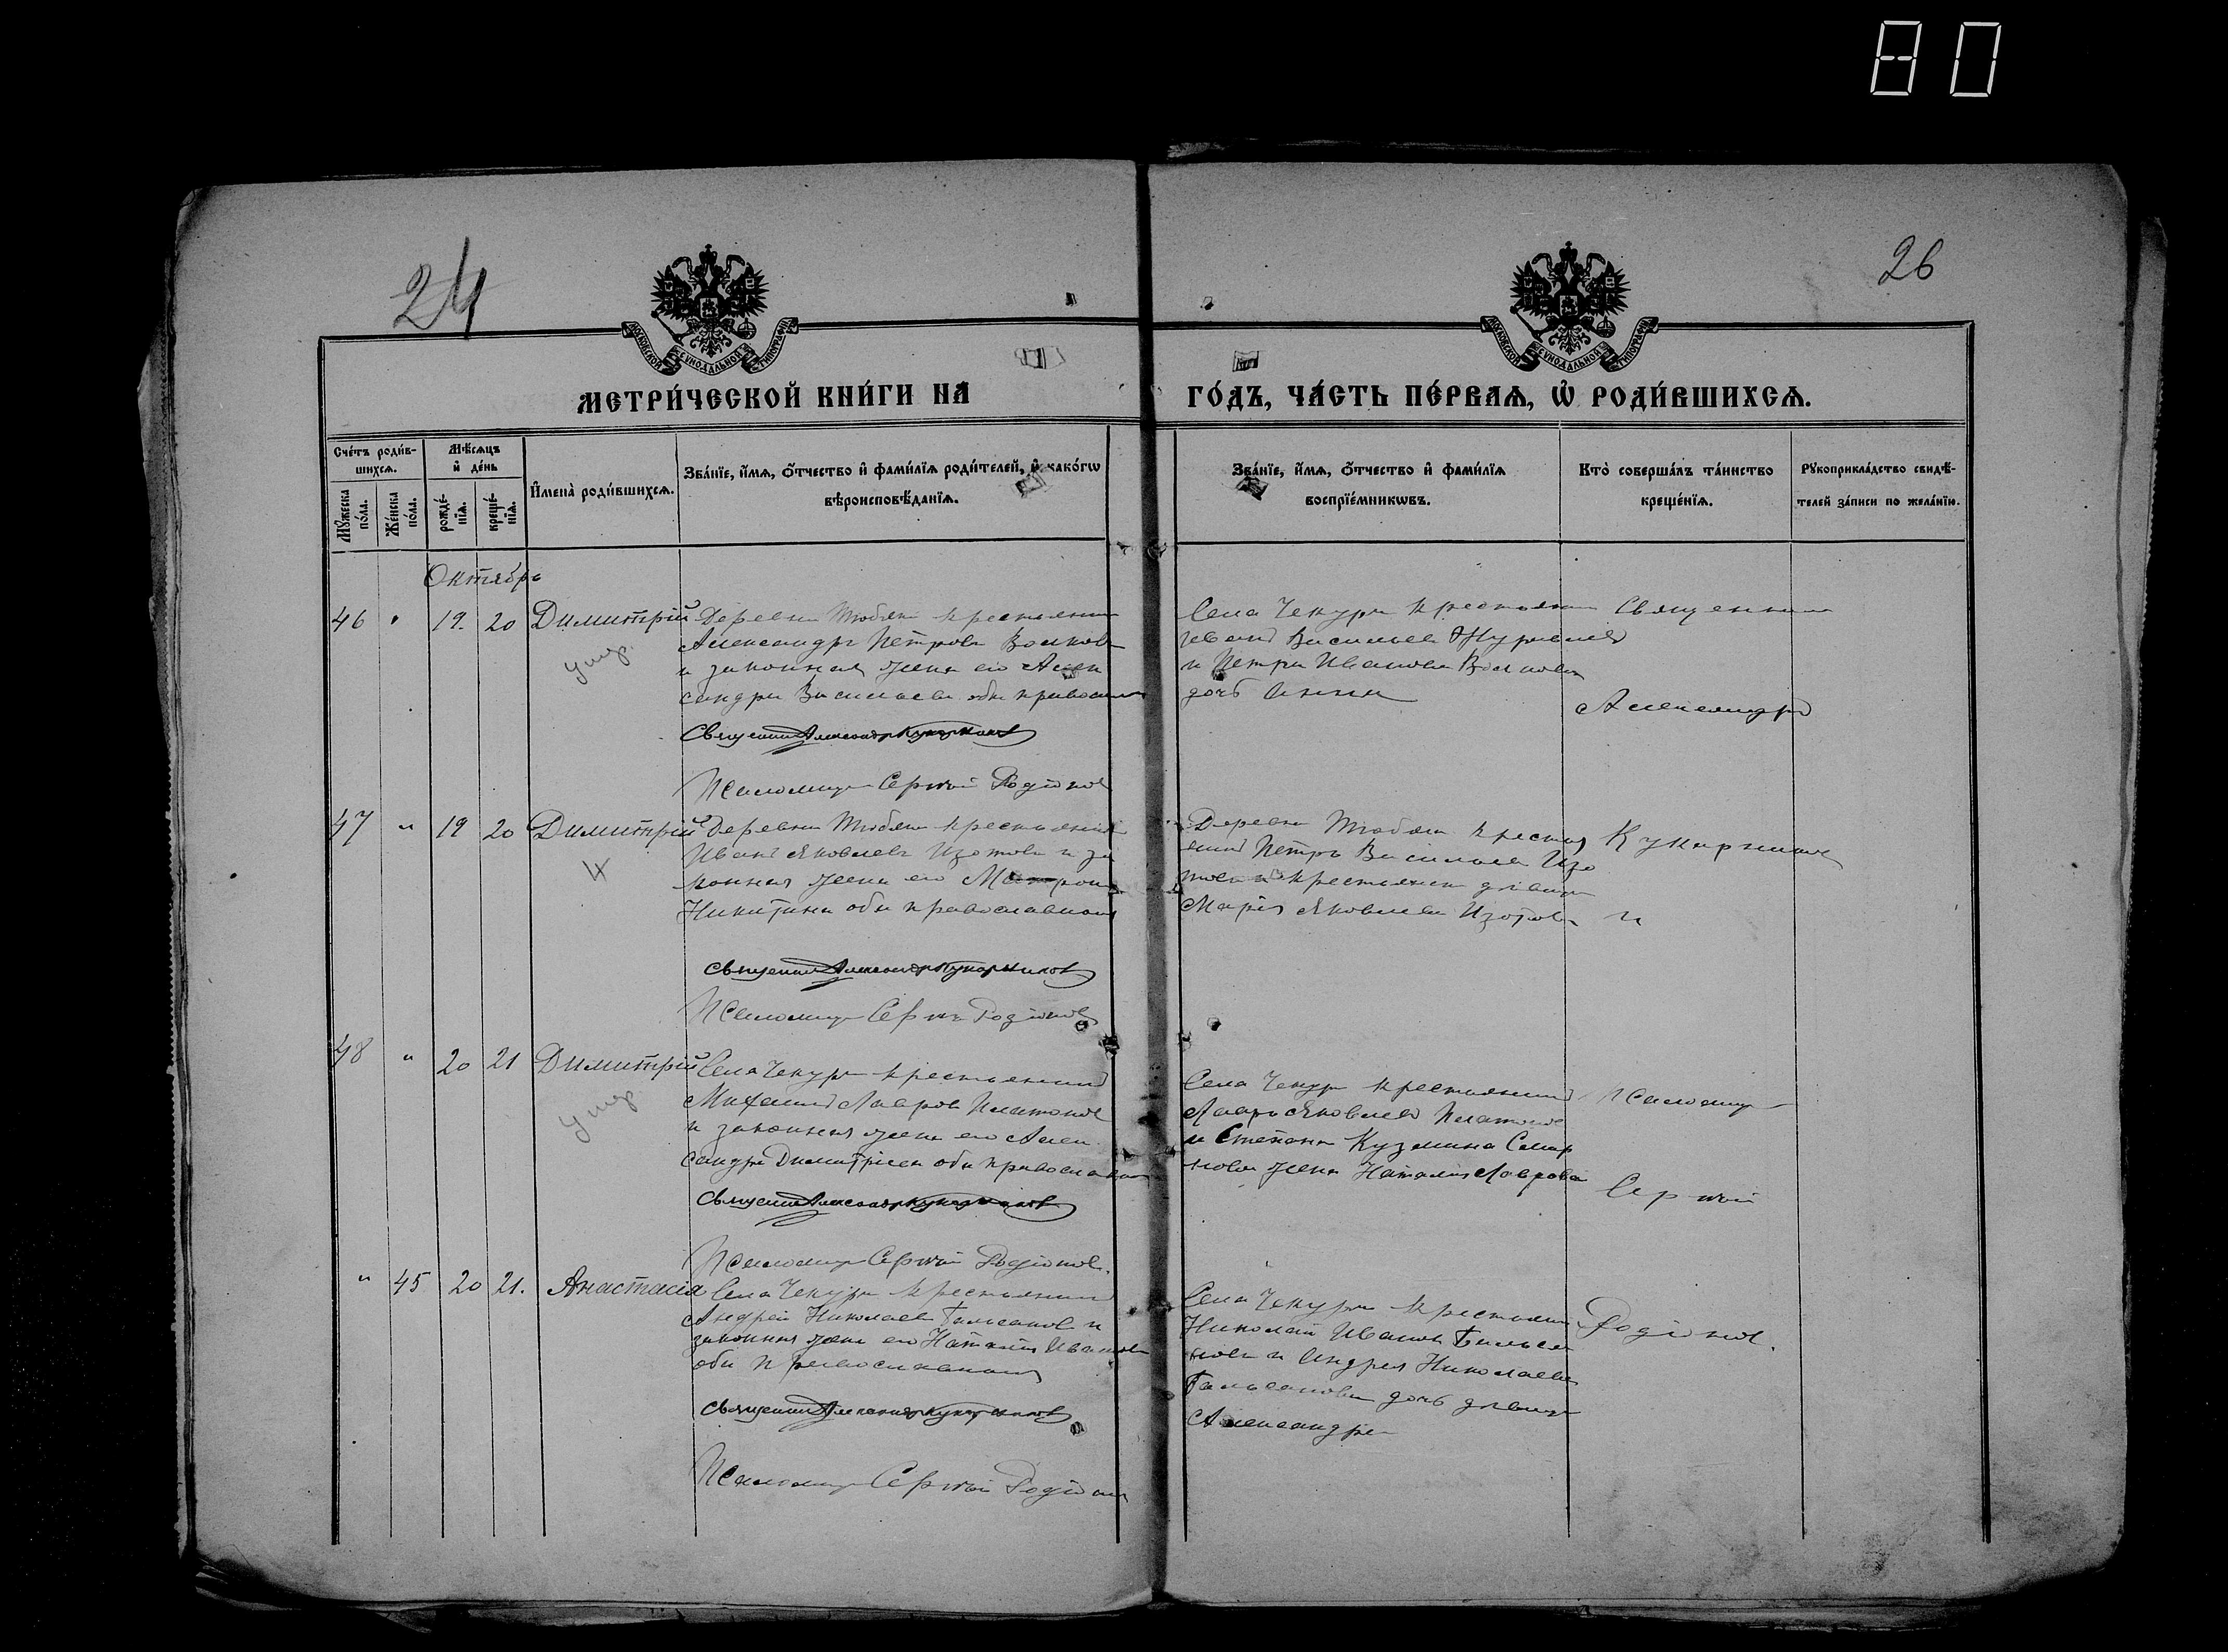 80
24
26
МОСКОВСКОЙ СѴНОДАЛЬНОЙ ТИПОГРАФІИ
МОСКОВСКОЙ СѴНОДАЛЬНОЙ ТИПОГРАФІИ
МЕТРИ́ЧЕСКОЙ КНИ́ГИ НА
ГО́ДЪ, ЧА́СТЬ ПЕ́РВАѦ, Ѡ҆ РОДИ́ВШИХСѦ.
Сче́тъ роди́в-
шихсѧ.
Мѣ́сѧцъ
и҆ де́нь
Мꙋ́жеска
по́ла.
Же́нска
по́ла.
рожде́-
нїѧ.
креще́-
нїѧ.
И҆мена̀ роди́вшихсѧ.
Зва́нїе, и҆́мѧ, ѻ҆́тчество и҆ фами́лїѧ роди́телей, и҆ како́гѡ
вѣроисповѣ́данїѧ.
Зва́нїе, и҆́мѧ, ѻ҆́тчество и҆ фами́лїѧ
воспрїе́мникѡвъ.
Кто̀ соверша́лъ та́инство
креще́нїѧ.
Рꙋкоприкла́дство свидѣ́-
телей за́писи по жела́нїю.
Октябрь
46 " 19. 20 Димитрій
умр.
Деревни крестьянин
Александръ Петровъ Волковъ
и законная жена его Алек
сандра Васильева оба православн
Священник Александр Кукарников
Псаломщ Сергѣй Родіонов
Села Чекуры крестьянин
Иванъ Васильев Журавлев
и Петра Иванова Волкова
дочь Анна
Священник
Александръ
47 " 19 20 Димитрій
4
Деревни крестьянинъ
Иванъ Яковлевъ Изотовъ и за
конная жена его Матрона
Никитина оба православные
Священник Александр Кукарников
Псаломщ Сергѣй Родіонов
Деревни крестья
нинъ Петръ Васильев Изо
товъ и крестьянск дѣвица
Марія Яковлева Изотова
Кукарников
и
48 " 20 21 Димитрій
умр
Села Чекуры крестьянинъ
Михаилъ Лавров Платонов
и законная жена его Алек
сандра Димитріева оба православн
Священник Александр Кукарников
Псаломщ Сергѣй Родіонов.
Села Чекуры крестьянинъ
Лавръ Яковлевъ Платонов
и Степана Кузмина Смир
нова жена Наталія Лаврова
Псаломщ
Сергѣй
" 45 20 21. Анастасія
Села Чекуры крестьянин
Андрей Николаев и
законная жена его Наталія Иванова
оба православные
Священник Александр Кукарников
Псаломщ Сергѣй Родіонов
Села Чекуры крестьянин
Николай Иванов
нов и Андрея Николаева
дочь дѣвица
Александра
Родіонов.